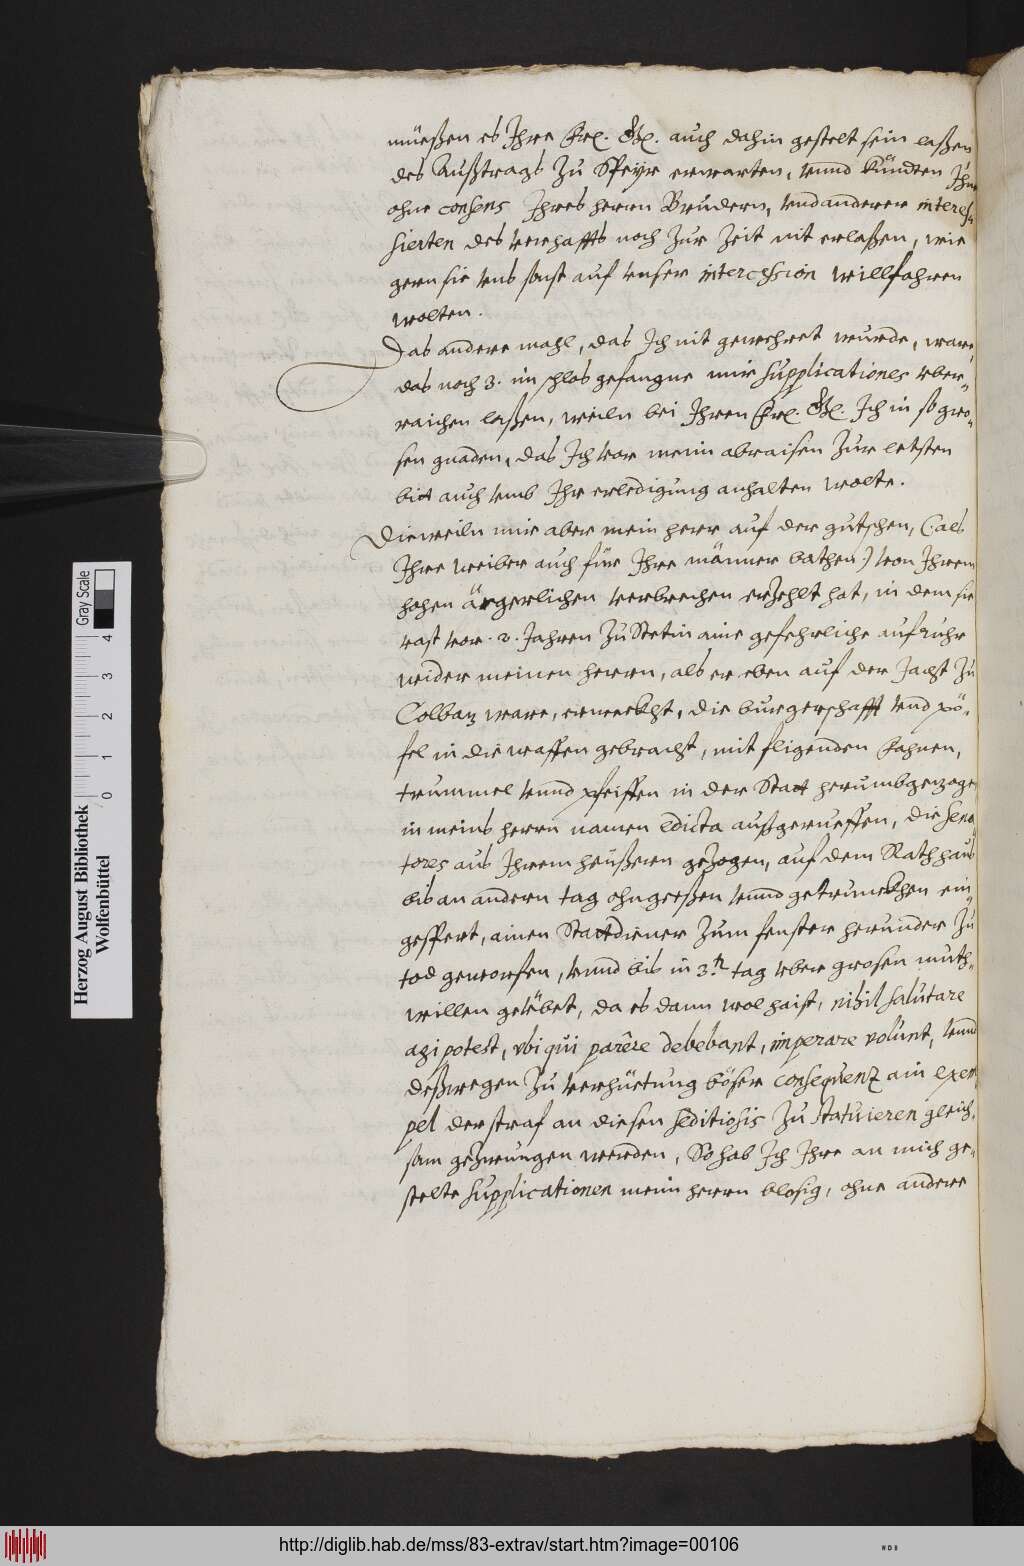 müeßen es Ihre Frl. Gl. auch dahin gestelt sein laßen
des Außtrags zu Speyr erwarten, vnnd kündten Ihne
ohne consens Ihres herrn Brudern, vnd anderer interes-
sierten des verhaffts noch zur zeit nit erlaßen, wie
gern sie vns sonst auf vnser intercession willfahren
wolten.
Das andere mahl, das Ich nit gewehret wurde, ware,
das noch 3. im schlos gefangne mir supplicationes vber-
raichen laßen, weiln bei Ihren Frl. Gl. Ich in so gro-
sen gnaden, das Ich vor meim abraisen zur letsten
bitt auch vmb Ihr erledigung anhalten wolte.
Dieweiln mir aber mein herr auf der gutschen, (als
Ihre weiber auch für Ihre männer bathen) von Ihrem
hohen ärgerlichen verbrechen erzehlt hat, in dem sie
vast vor .2. Jahren zu Stetin aine gefehrliche aufruhr
wider meinen herren, als er eben auf der Jacht zu
Colbaz ware, erweckht, die burgerschafft vnd pö-
fel in die waffen gebracht, mit fligenden fahnen,
trummel vnnd pfeiffen in der Statt herumbgezoge
in meins herrn namen edicta außgerueffen, die sena-
tores aus Ihrem heüßern gezogen, auf dem Rathhaus
bis an andern tag ohngeeßen vnnd getrunckhen ein-
gespert, ainen Stattdiener zum fenster herunder zu
tod geworfen, vnnd bis in 3.n tag vber grosen muth-
willen geübet, da es dann wol haist, nihil salutare
agi potest, vbi qui parêre debebant, imperare volunt, vnnd
deßwegen zu verhüetung böser consequenz ain exem-
pel der straf an diesen seditiosis zu statuieren gleich-
sam gezwungen werden, So hab Ich Ihre an mich ge-
stelte supplicationen meim herrn blosig, ohne andere
Herzog August Bibliothek
Wolfenbüttel
0 1 2 3 4
Gray Scale
http://diglib.hab.de/mss/83-extrav/start.htm?image=00106
WDB